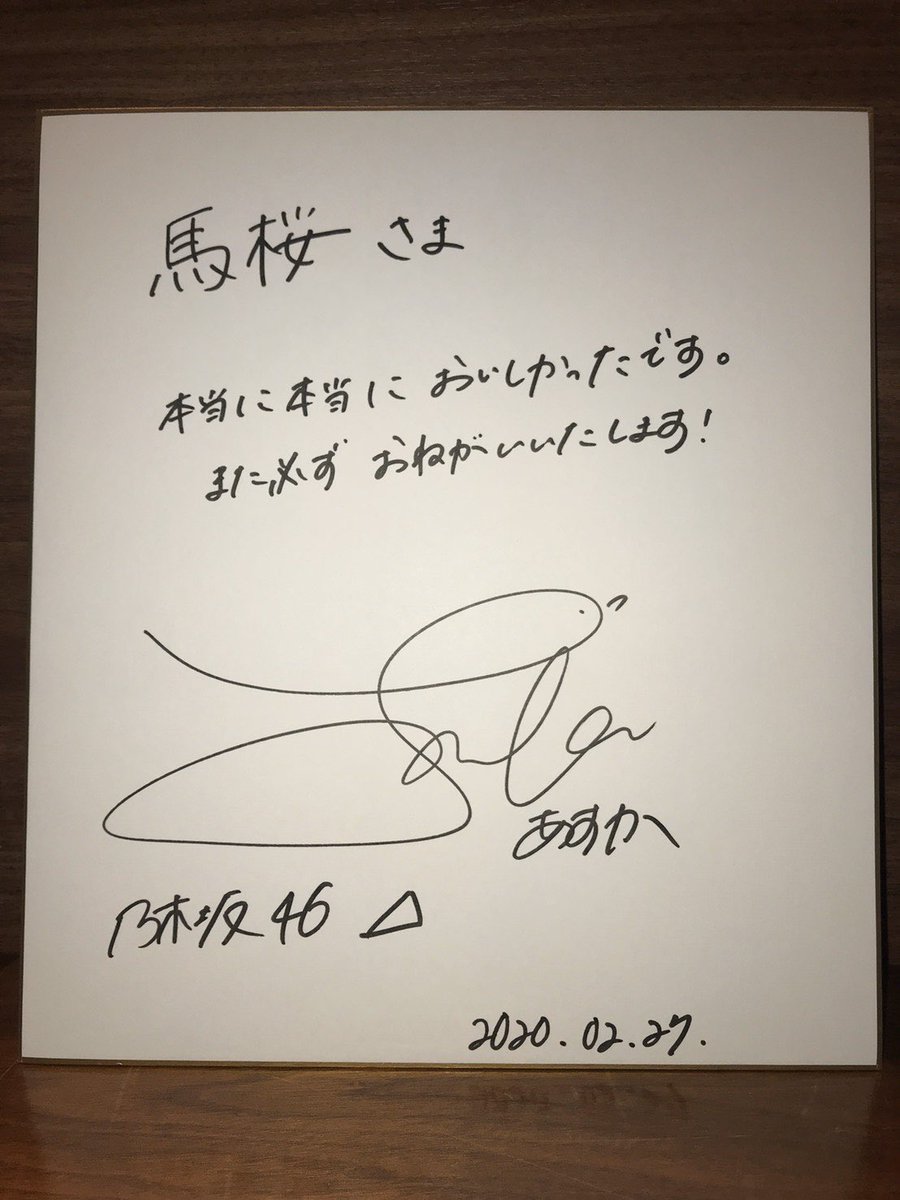 馬桜さま
本当に本当においしかったです。
また必ずおねがいいたします!
あすか
乃木坂46 △
2020.02.27.